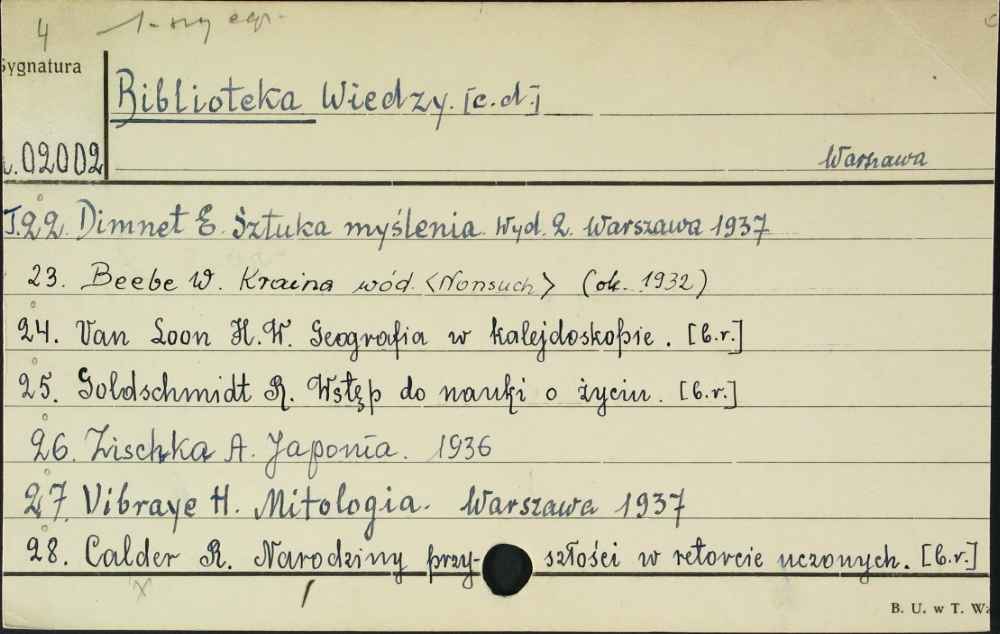 4 1-szy egz.
Sygnatura
Biblioteka Wiedzy. [c.d.]
02002
Warszawa
T.22. Dimnet E. Sztuka myślenia. Wyd. 2. Warszawa 1937
23. Beebe W. Kraina wód <Nonsuch> (ok. 1932)
24. Van Loon H.W. Geografia w kalejdoskopie. [b.r.]
25. Goldschmidt R. Wstęp do nauki o życiu. [b.r.]
26. Zischka A. Japonia. 1936
27. Vibraye H. Mitologia. Warszawa 1937
28. Calder R. Narodziny przy-szłości w retorcie uczonych. [b.r.]
B. U. w T. Wz